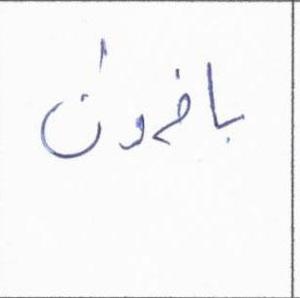 بافرون